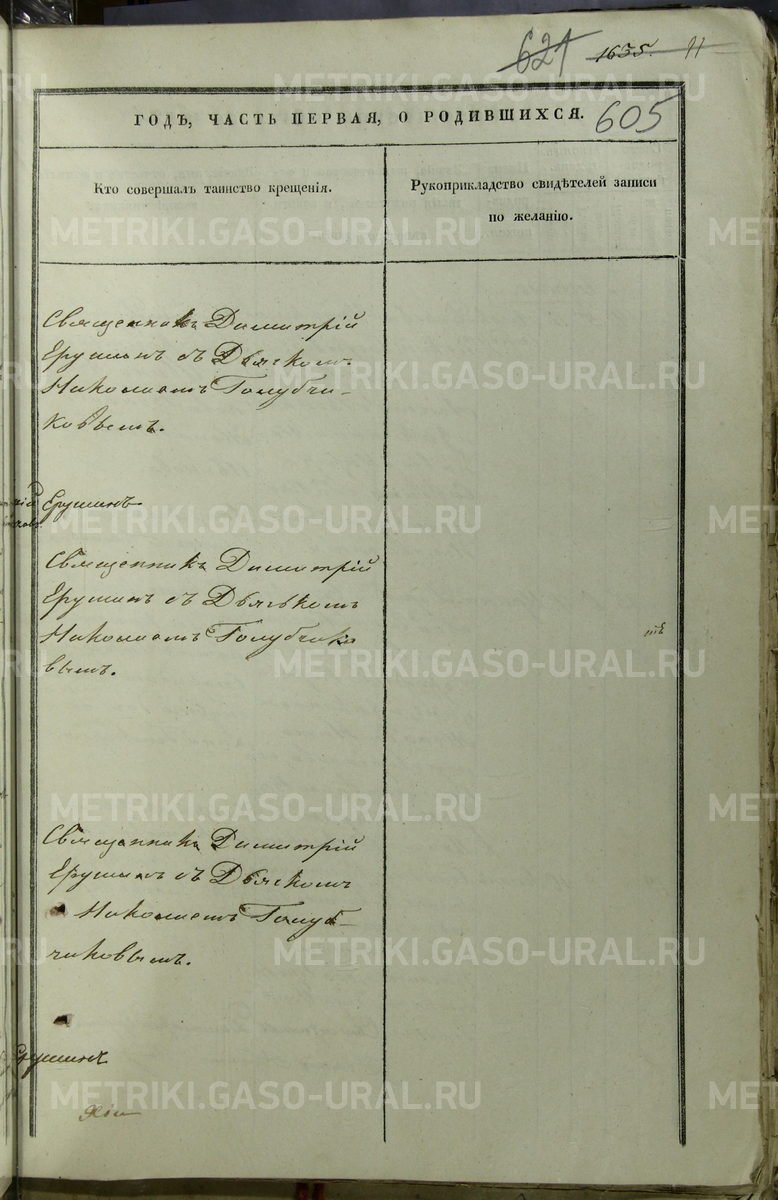 621 1635. 11
605
ГОДЪ, ЧАСТЬ ПЕРВАЯ, О РОДИВШИХСЯ.
Кто совершалъ таинство крещенія.
Рукоприкладство свидѣтелей записи
по желанію.
Священникъ Димитрій
Ерушинъ съ Дьячкомъ
Николаемъ Голубчи-
ковымъ.
Ерушинъ
Священникъ Димитрій
Ерушинъ съ Дьячькомъ
Николаемъ Голубчико
вымъ.
Священникъ Димитрій
Ерушинъ съ Дьячкомъ
Николаемъ Голуб-
чиковымъ.
Ерушинъ
METRIKI.GASO-URAL.RU